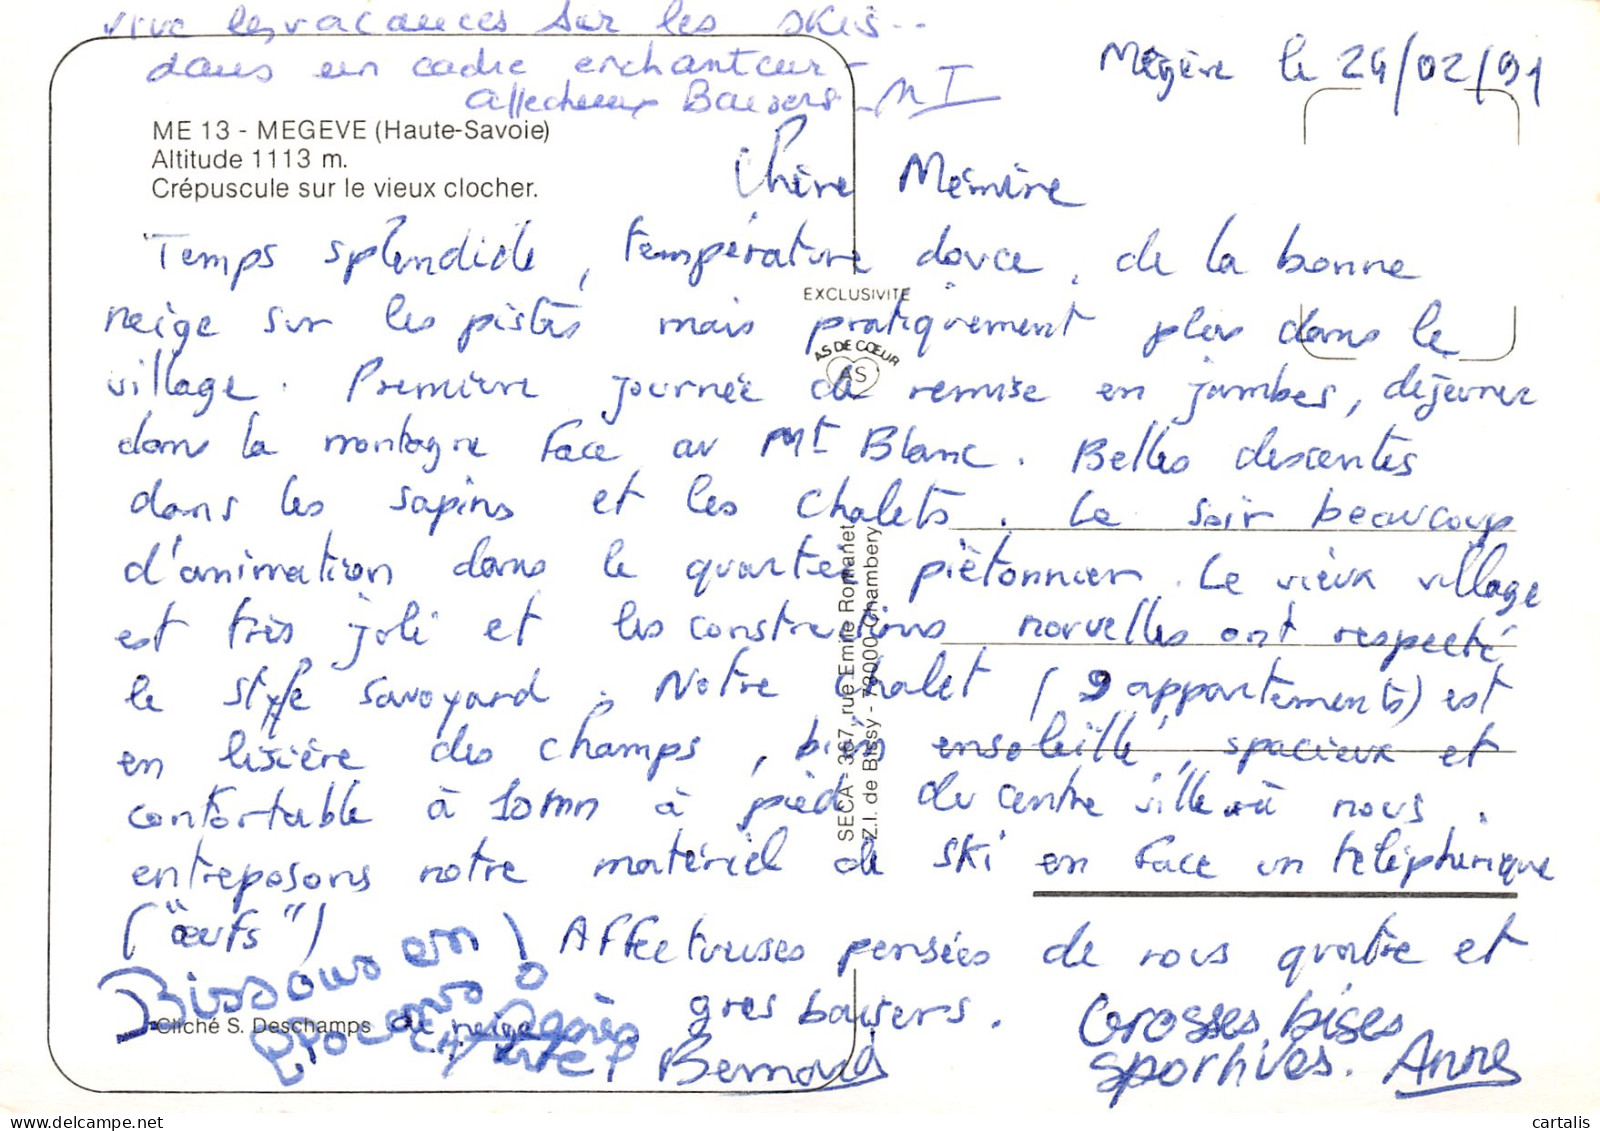 vive les vacances sur les skis..
dans un cadre enchanteur -
affectueux Baisers _ M I
Mégève le 24/02/91
ME 13 - MEGEVE (Haute-Savoie)
Altitude 1113 m.
Crépuscule sur le vieux clocher.
Chère Mémère
Temps splendide, température douce, de la bonne
neige sur les pistes mais pratiquement plus dans le
village. Première journée de remise en jambes, déjeuner
dans la montagne face au Mt Blanc. Belles descentes
dans les sapins et les chalets. Le soir beaucoup
d'animation dans le quartier piètonnier. Le vieux village
est très joli et les constructions nouvelles ont respecté
le style savoyard. Notre chalet (9 appartements) est
en lisière des champs, bien ensoleillé, spacieux et
confortable à 10mn à pied du centre ville où nous
entreposons notre matériel de ski en face un téléphérique
("œufs")
Affectueuses pensées de nous quatre et
gros baisers.
Bernard
Bissous en
flocons
de neige
Agnès
Grosses bises
sportives. Anne
EXCLUSIVITE
AS DE CŒUR
AS
SECA - 367, rue Emile Romanet
Z.I. de Bissy - 73000 Chambery
Cliché S. Deschamps
cartalis